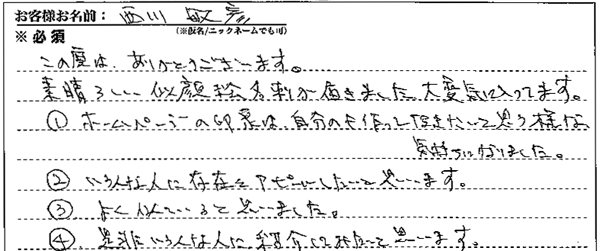 お客様お名前：西川 敏彦
※必須 （※仮名/ニックネームでも可）
この度は、ありがとうございます。
素晴らしい似顔絵名刺が届きました。大変気に入ってます。
① ホームページの印象は、自分のも作って頂きたいと思う様な
気持ちになりました。
② いろんな人に存在をアピールしたいと思います。
③ よく似ていると思いました。
④ 是非いろんな人に紹介してみたいと思います。